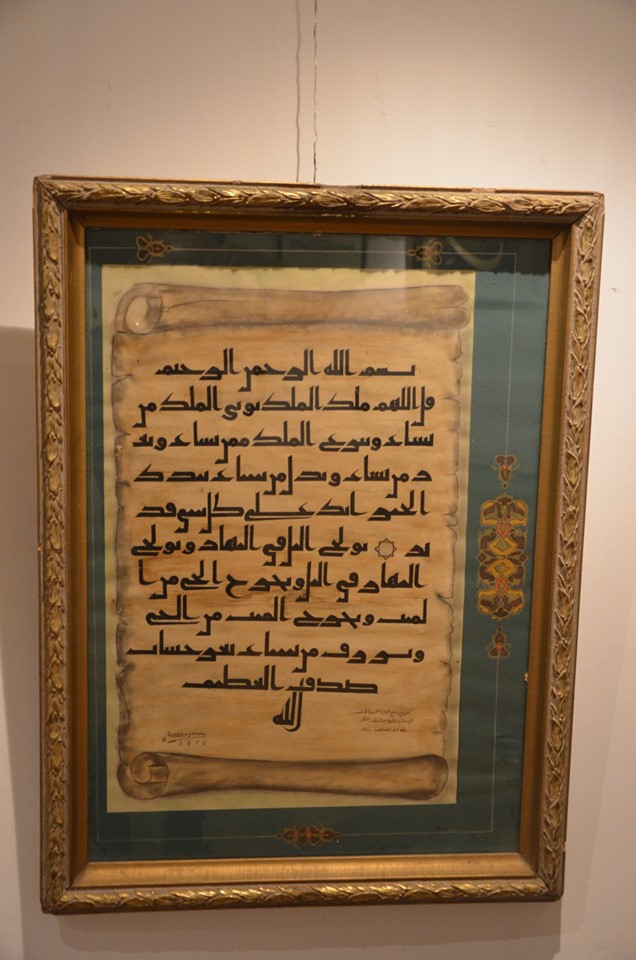 بسم الله الرحمن الرحيم
قل اللهم ملك الملك توتي الملك من
تشاء وتنزع الملك ممن تشاء وتع
ز من تشاء وتذل من تشاء بيدك
الخير انك على كل شي قد
ير تولج اليل في النهار وتولج
النهار في اليل وتخرج الحي من ا
لميت وتخرج الميت من الحي
وترزق من تشاء بغير حساب
صدق العظيم
الله